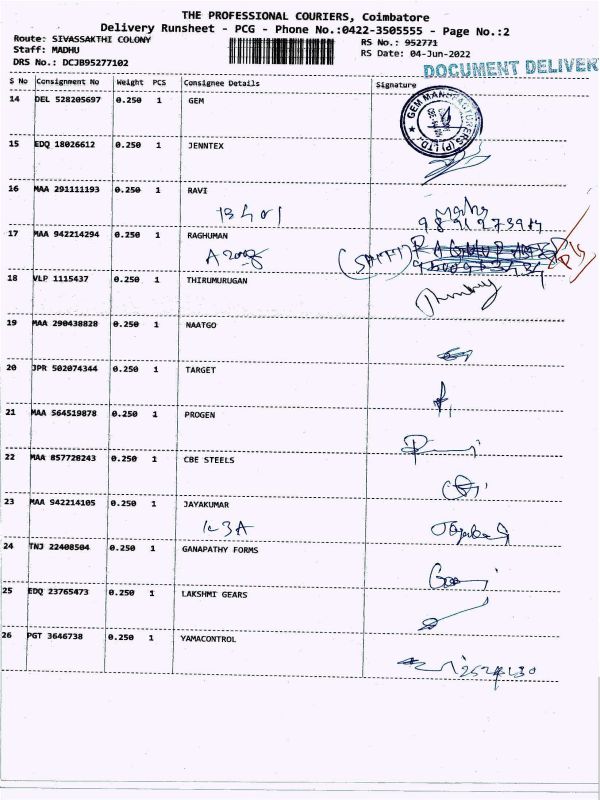 THE PROFESSIONAL COURIERS, Coimbatore
Delivery Runsheet - PCG - Phone No.:0422-3505555 - Page No.:2
Route: SIVASSAKTHI COLONY
RS No.: 952771
Staff: MADHU
RS Date: 04-Jun-2022
DRS No.: DCJB95277102
DOCUMENT DELIVER
S No Consignment No Weight PCS Consignee Details Signature
14 DEL 528205697 0.250 1 GEM
GEM MANUFACTURERS (P) LTD.
15 EDQ 18026612 0.250 1 JENNTEX
16 MAA 291111193 0.250 1 RAVI
17 MAA 942214294 0.250 1 RAGHUMAN
18 VLP 1115437 0.250 1 THIRUMURUGAN
19 MAA 290438828 0.250 1 NAATGO
20 JPR 502074344 0.250 1 TARGET
21 MAA 564519878 0.250 1 PROGEN
22 MAA 857728243 0.250 1 CBE STEELS
23 MAA 942214105 0.250 1 JAYAKUMAR
24 TNJ 22408504 0.250 1 GANAPATHY FORMS
25 EDQ 23765473 0.250 1 LAKSHMI GEARS
26 PGT 3646738 0.250 1 YAMACONTROL